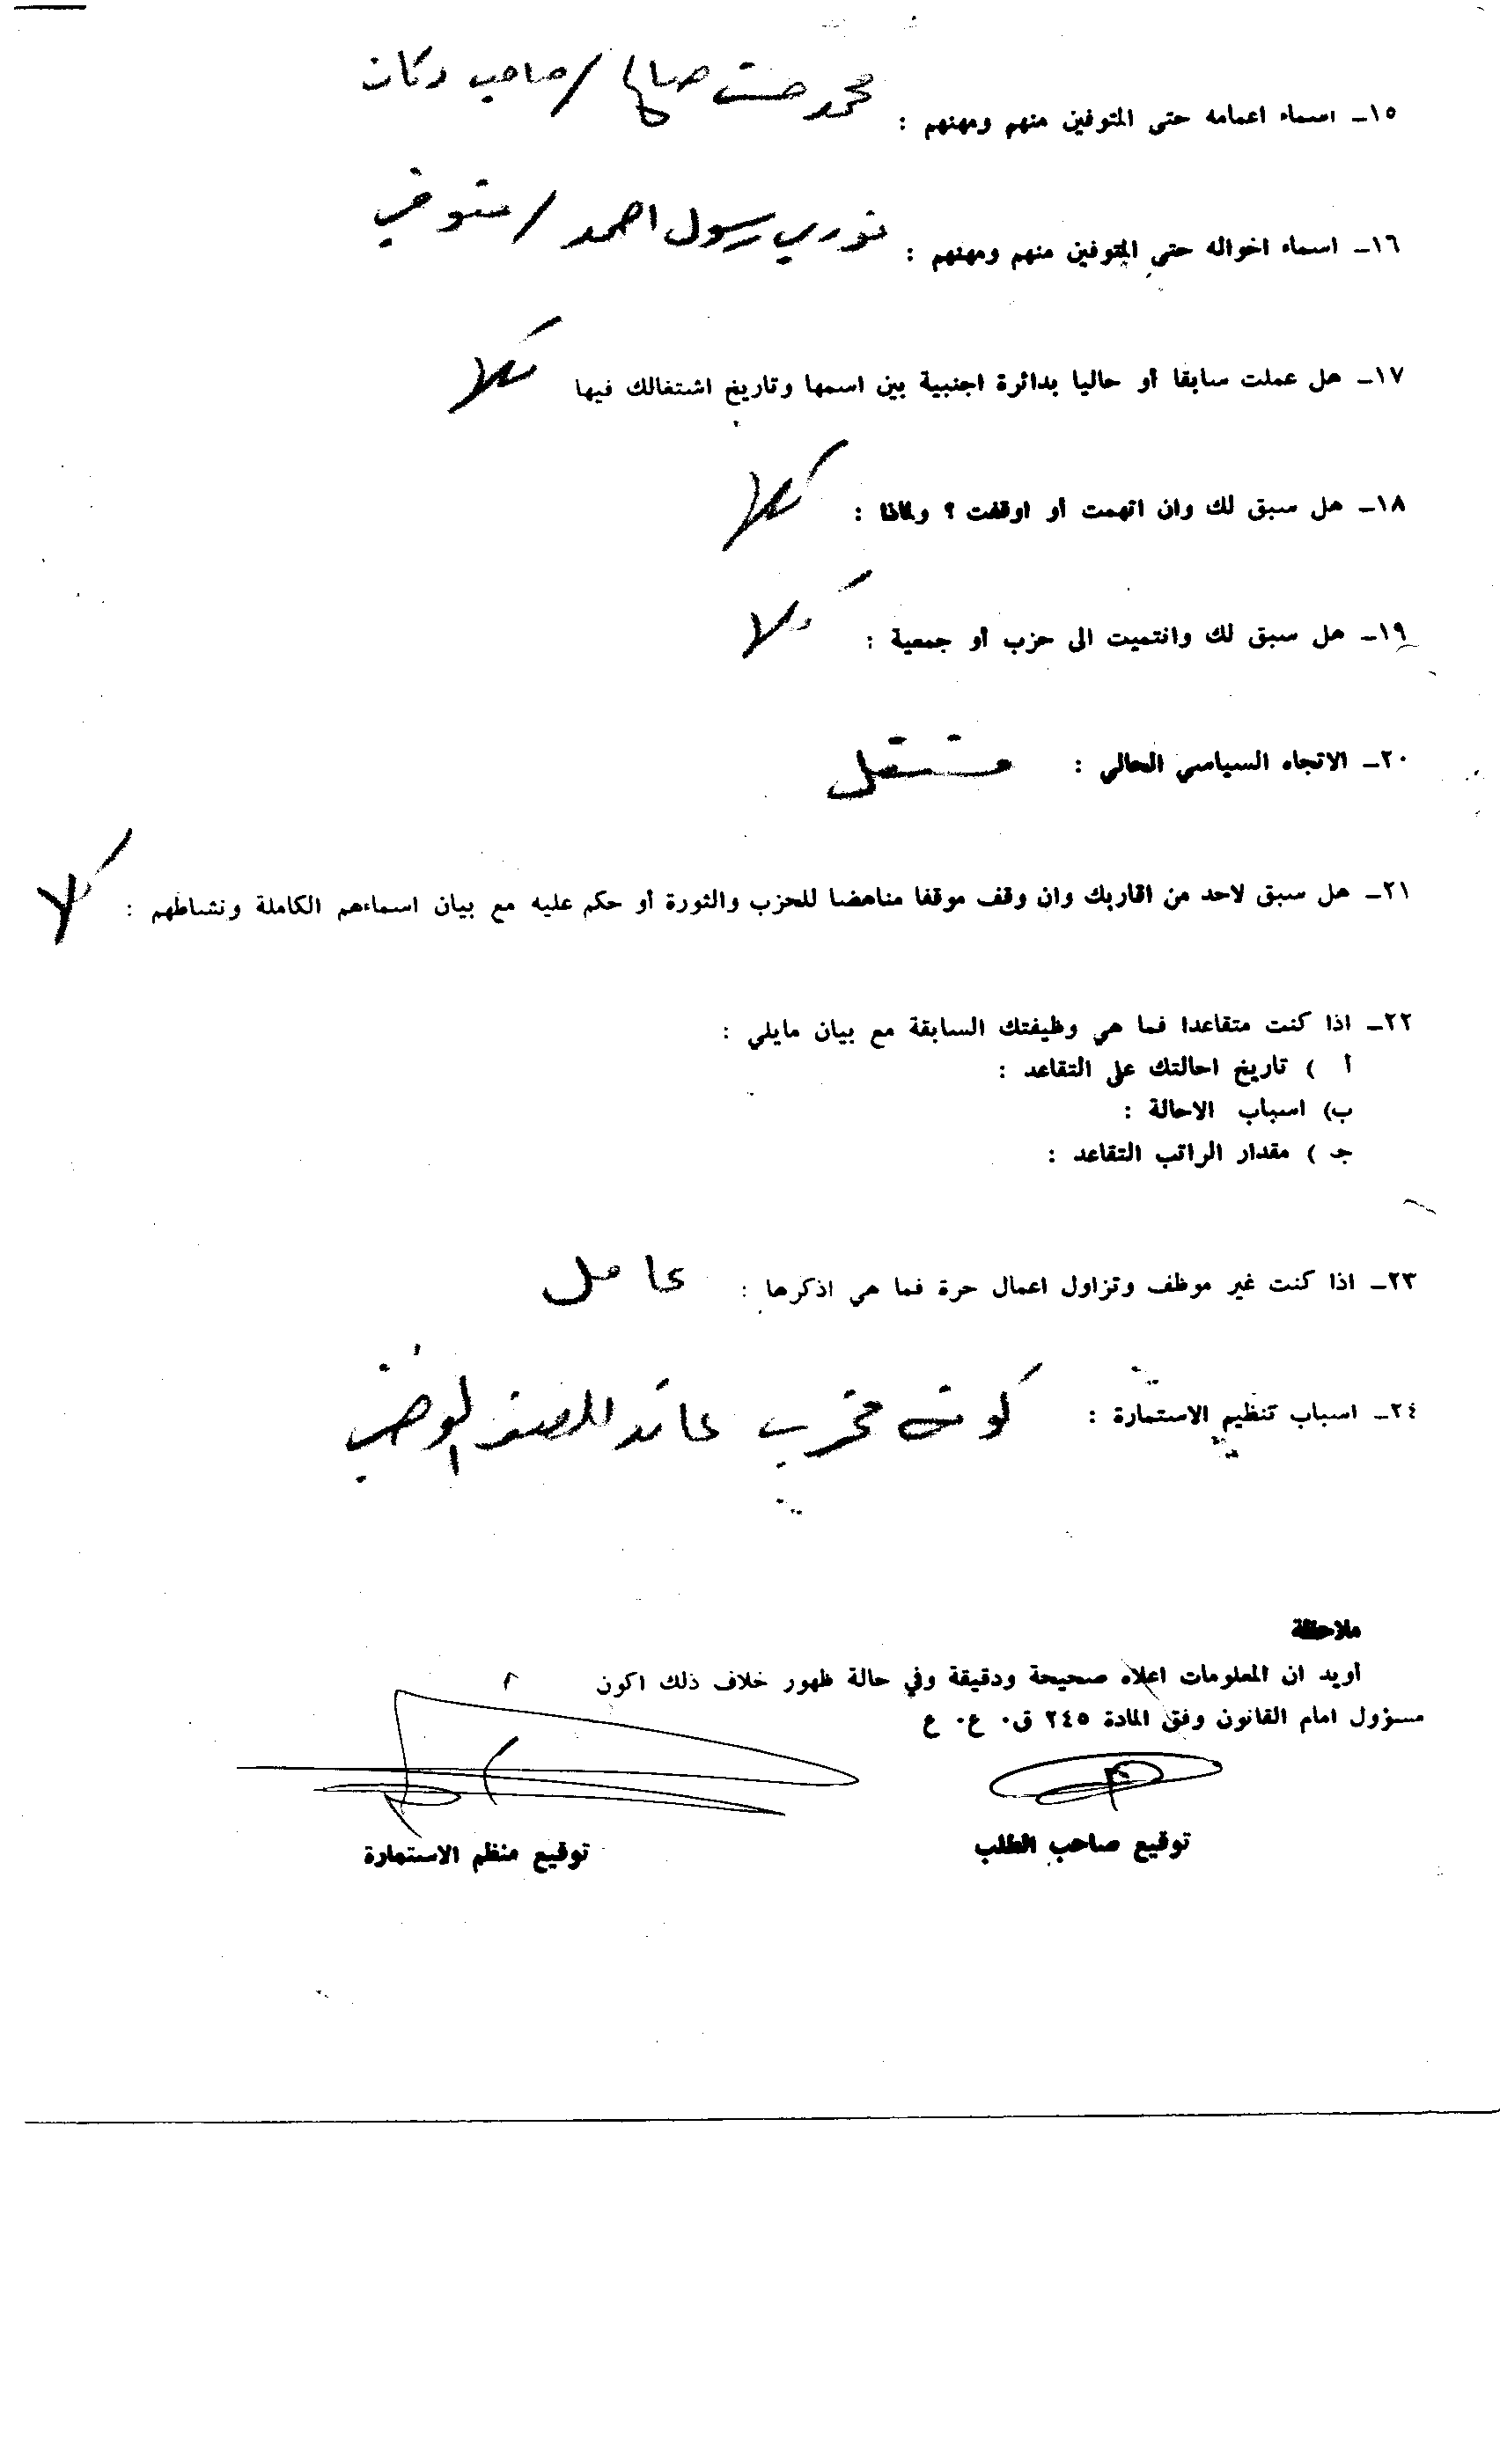 ١٥ـ اسماء اعمامه حتى المتوفين منهم ومهنهم : محمد حسن صالح / صاحب دكان
١٦ـ اسماء اخواله حتى المتوفين منهم ومهنهم : نوري رسول احمد / متوفي
١٧ـ هل عملت سابقا أو حاليا بدائرة اجنبية بين اسمها وتاريخ اشتغالك فيها كلا
١٨ـ هل سبق لك وان اتهمت أو اوقفت ؟ ولماذا : كلا
١٩ـ هل سبق لك وانتميت الى حزب أو جمعية : كلا
٢٠ـ الاتجاه السياسي الحالي : مستقل
٢١ـ هل سبق لاحد من اقاربك وان وقف موقفا مناهضا للحزب والثورة أو حكم عليه مع بيان اسماءهم الكاملة ونشاطهم : كلا
٢٢ـ اذا كنت متقاعدا فما هي وظيفتك السابقة مع بيان مايلي :
أ ) تاريخ احالتك على التقاعد :
ب) اسباب الاحالة :
جـ ) مقدار الراتب التقاعد :
٢٣ـ اذا كنت غير موظف وتزاول اعمال حرة فما هي اذكرها : عامل
٢٤ـ اسباب تنظيم الاستمارة : كونه مخرب عائد للصف الوطني
ملاحظة
أويد ان المعلومات اعلاه صحيحة ودقيقة وفي حالة ظهور خلاف ذلك اكون
مسؤول امام القانون وفق المادة ٢٤٥ ق٠ ع٠ ع
توقيع صاحب الطلب
توقيع منظم الاستمارة